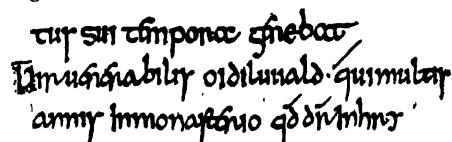 tus sui tempora gerebat
Uir uenerabilis oidiluuald · qui multis
annis Inmonasterio qd dr